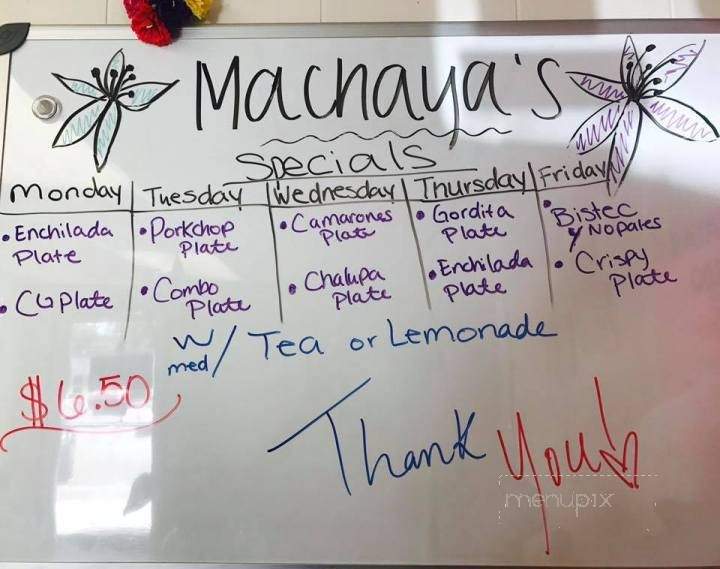 Machaya's
Specials
Monday Tuesday Wednesday Thursday Friday
• Enchilada Plate
• CG Plate
• Porkchop Plate
• Combo Plate
• Camarones Plate
• Chalupa Plate
• Gordita Plate
• Enchilada Plate
• Bistec y Nopales
• Crispy Plate
w/ med Tea or Lemonade
$6.50
Thank You!
menupix